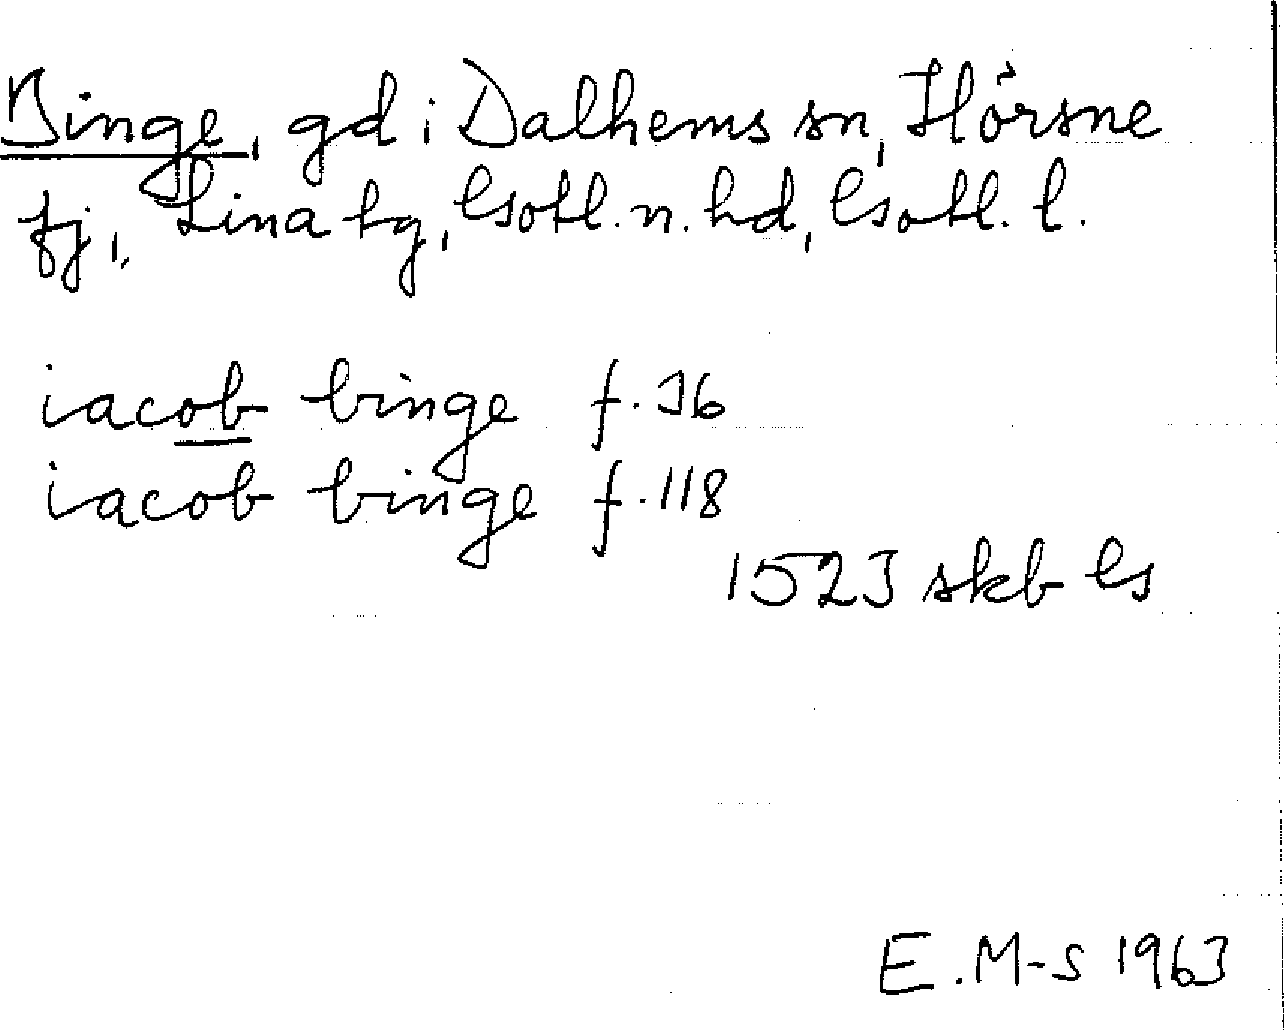 Binge, gd i Dalhems sn, Hörsne
fj, Lina tg, Gotl. n. hd, Gotl. l.
iacob binge f. 36
iacob binge f. 118
1523 skb G
E. M-S 1963